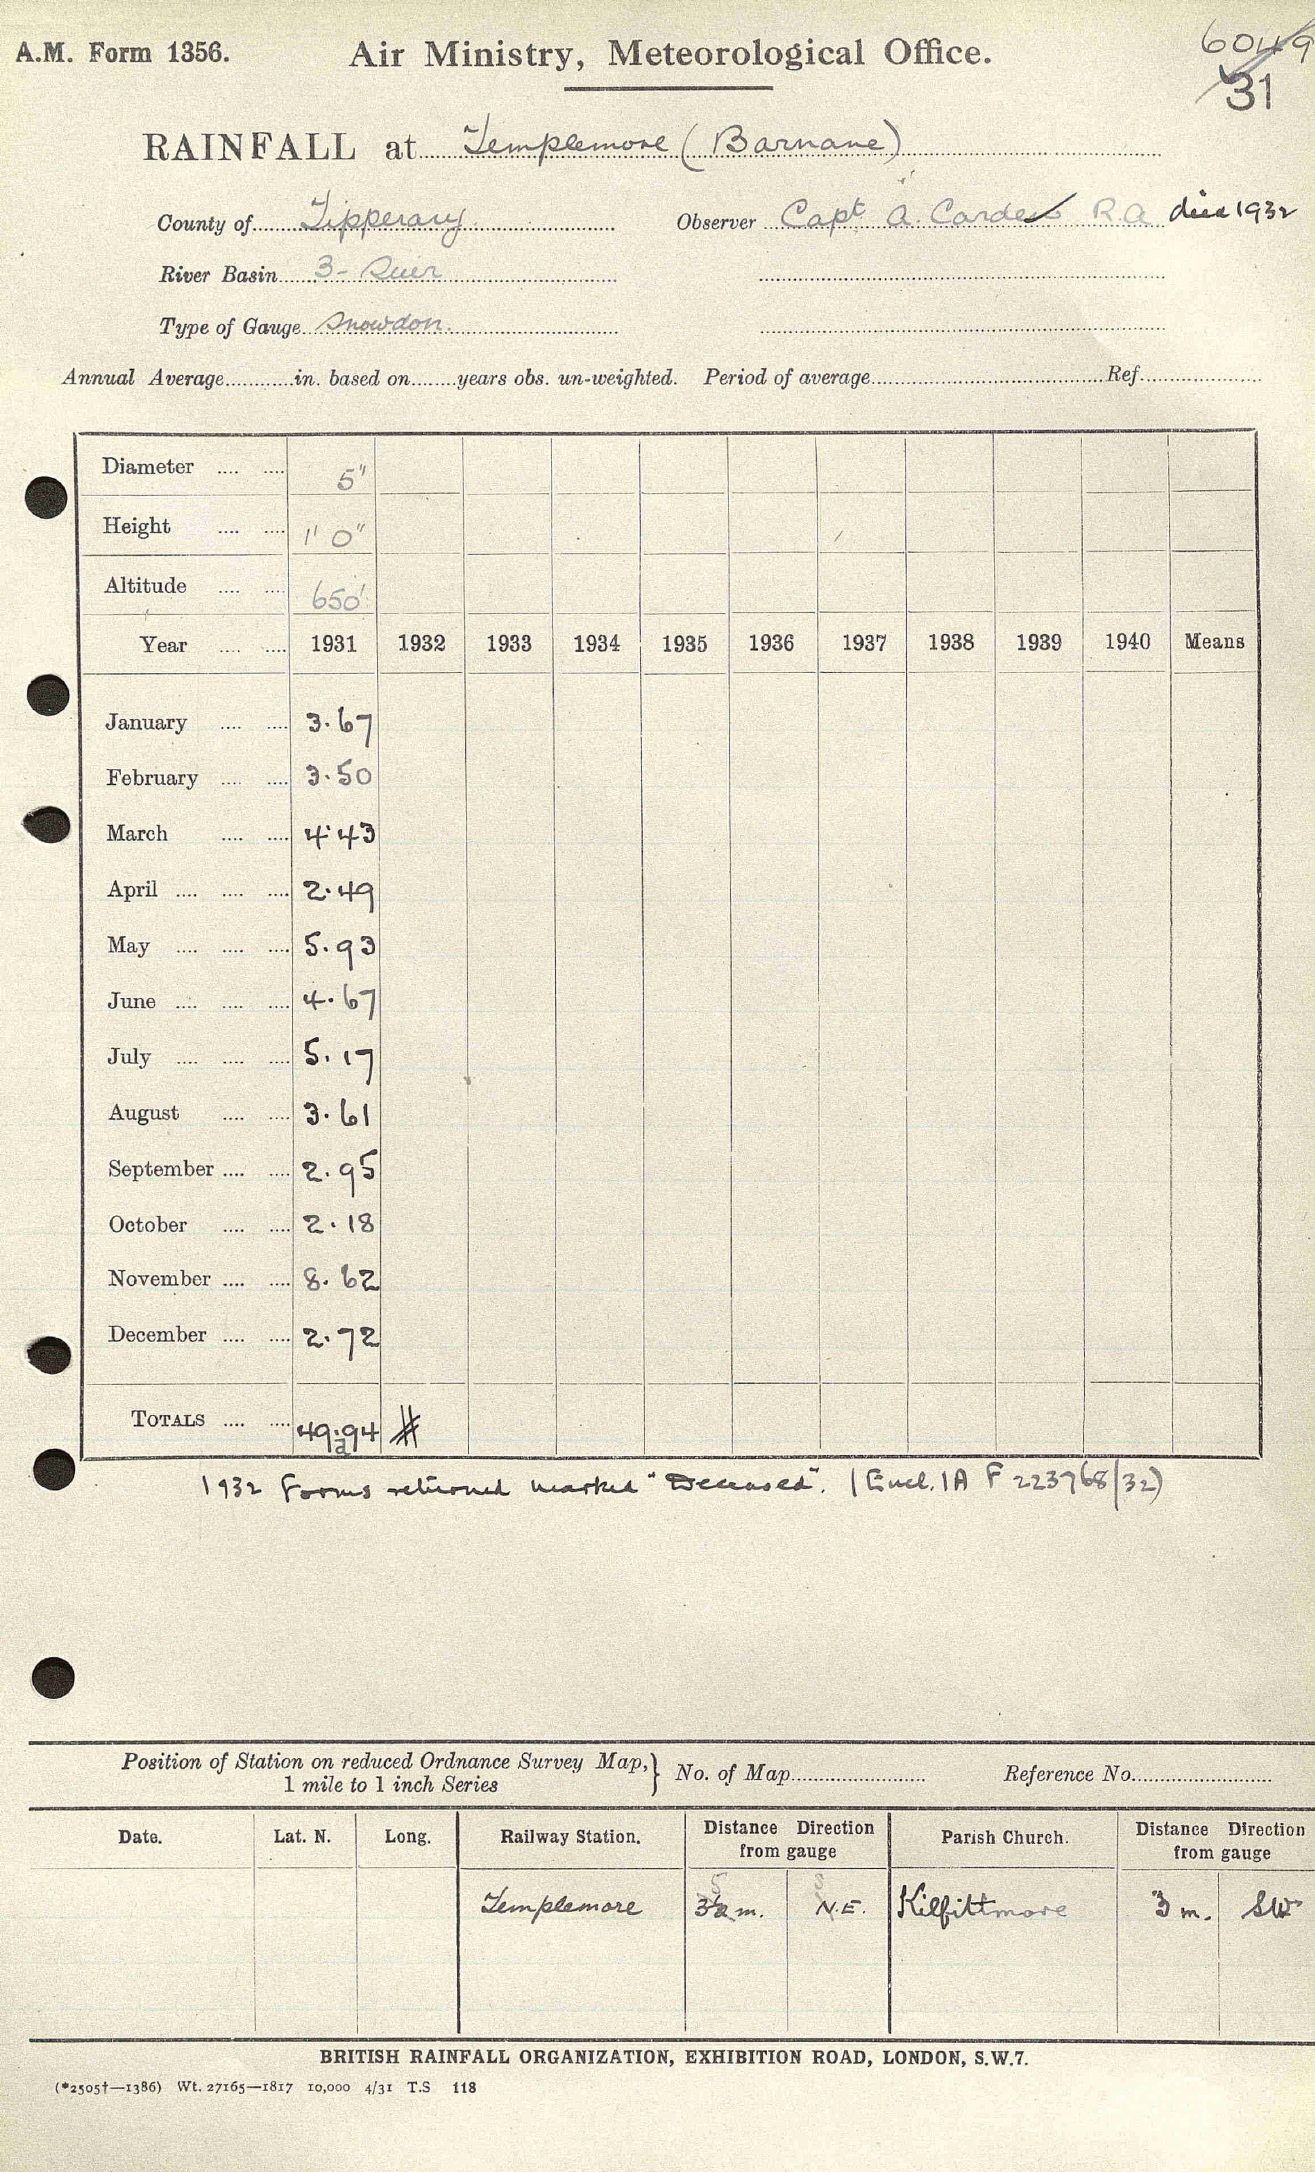 A.M. Form 1356.
Air Ministry, Meteorological Office.
6049
31
RAINFALL at Templemore (Barnane)
County of Tipperary
Observer Capt A. Carden R.A died 1932
River Basin 3- Suir
Type of Gauge Snowdon.
Annual Average............in. based on........years obs. un-weighted. Period of average........................................Ref.....................
Diameter .... .... 5"
Height .... .... 1' 0"
Altitude .... .... 650'
Year .... .... 1931 1932 1933 1934 1935 1936 1937 1938 1939 1940 Means
January .... .... 3.67
February .... .... 3.50
March .... .... 4.43
April .... .... .... 2.49
May .... .... .... 5.93
June .... .... .... 4.67
July .... .... .... 5.17
August .... .... 3.61
September .... .... 2.95
October .... .... 2.18
November .... .... 8.62
December .... .... 2.72
TOTALS .... .... 49.94 #
a
1932 Forms returned marked "Deceased". (Encl. 1A F 223768/32)
Position of Station on reduced Ordnance Survey Map,
1 mile to 1 inch Series
No. of Map........................ Reference No........................
Date. Lat. N. Long. Railway Station. Distance Direction from gauge Parish Church. Distance Direction from gauge
Templemore 3½ m. N.E. Kilfittmore 3 m. SW
BRITISH RAINFALL ORGANIZATION, EXHIBITION ROAD, LONDON, S.W.7.
(*2505†—1386) Wt. 27165—1817 10,000 4/31 T.S 118